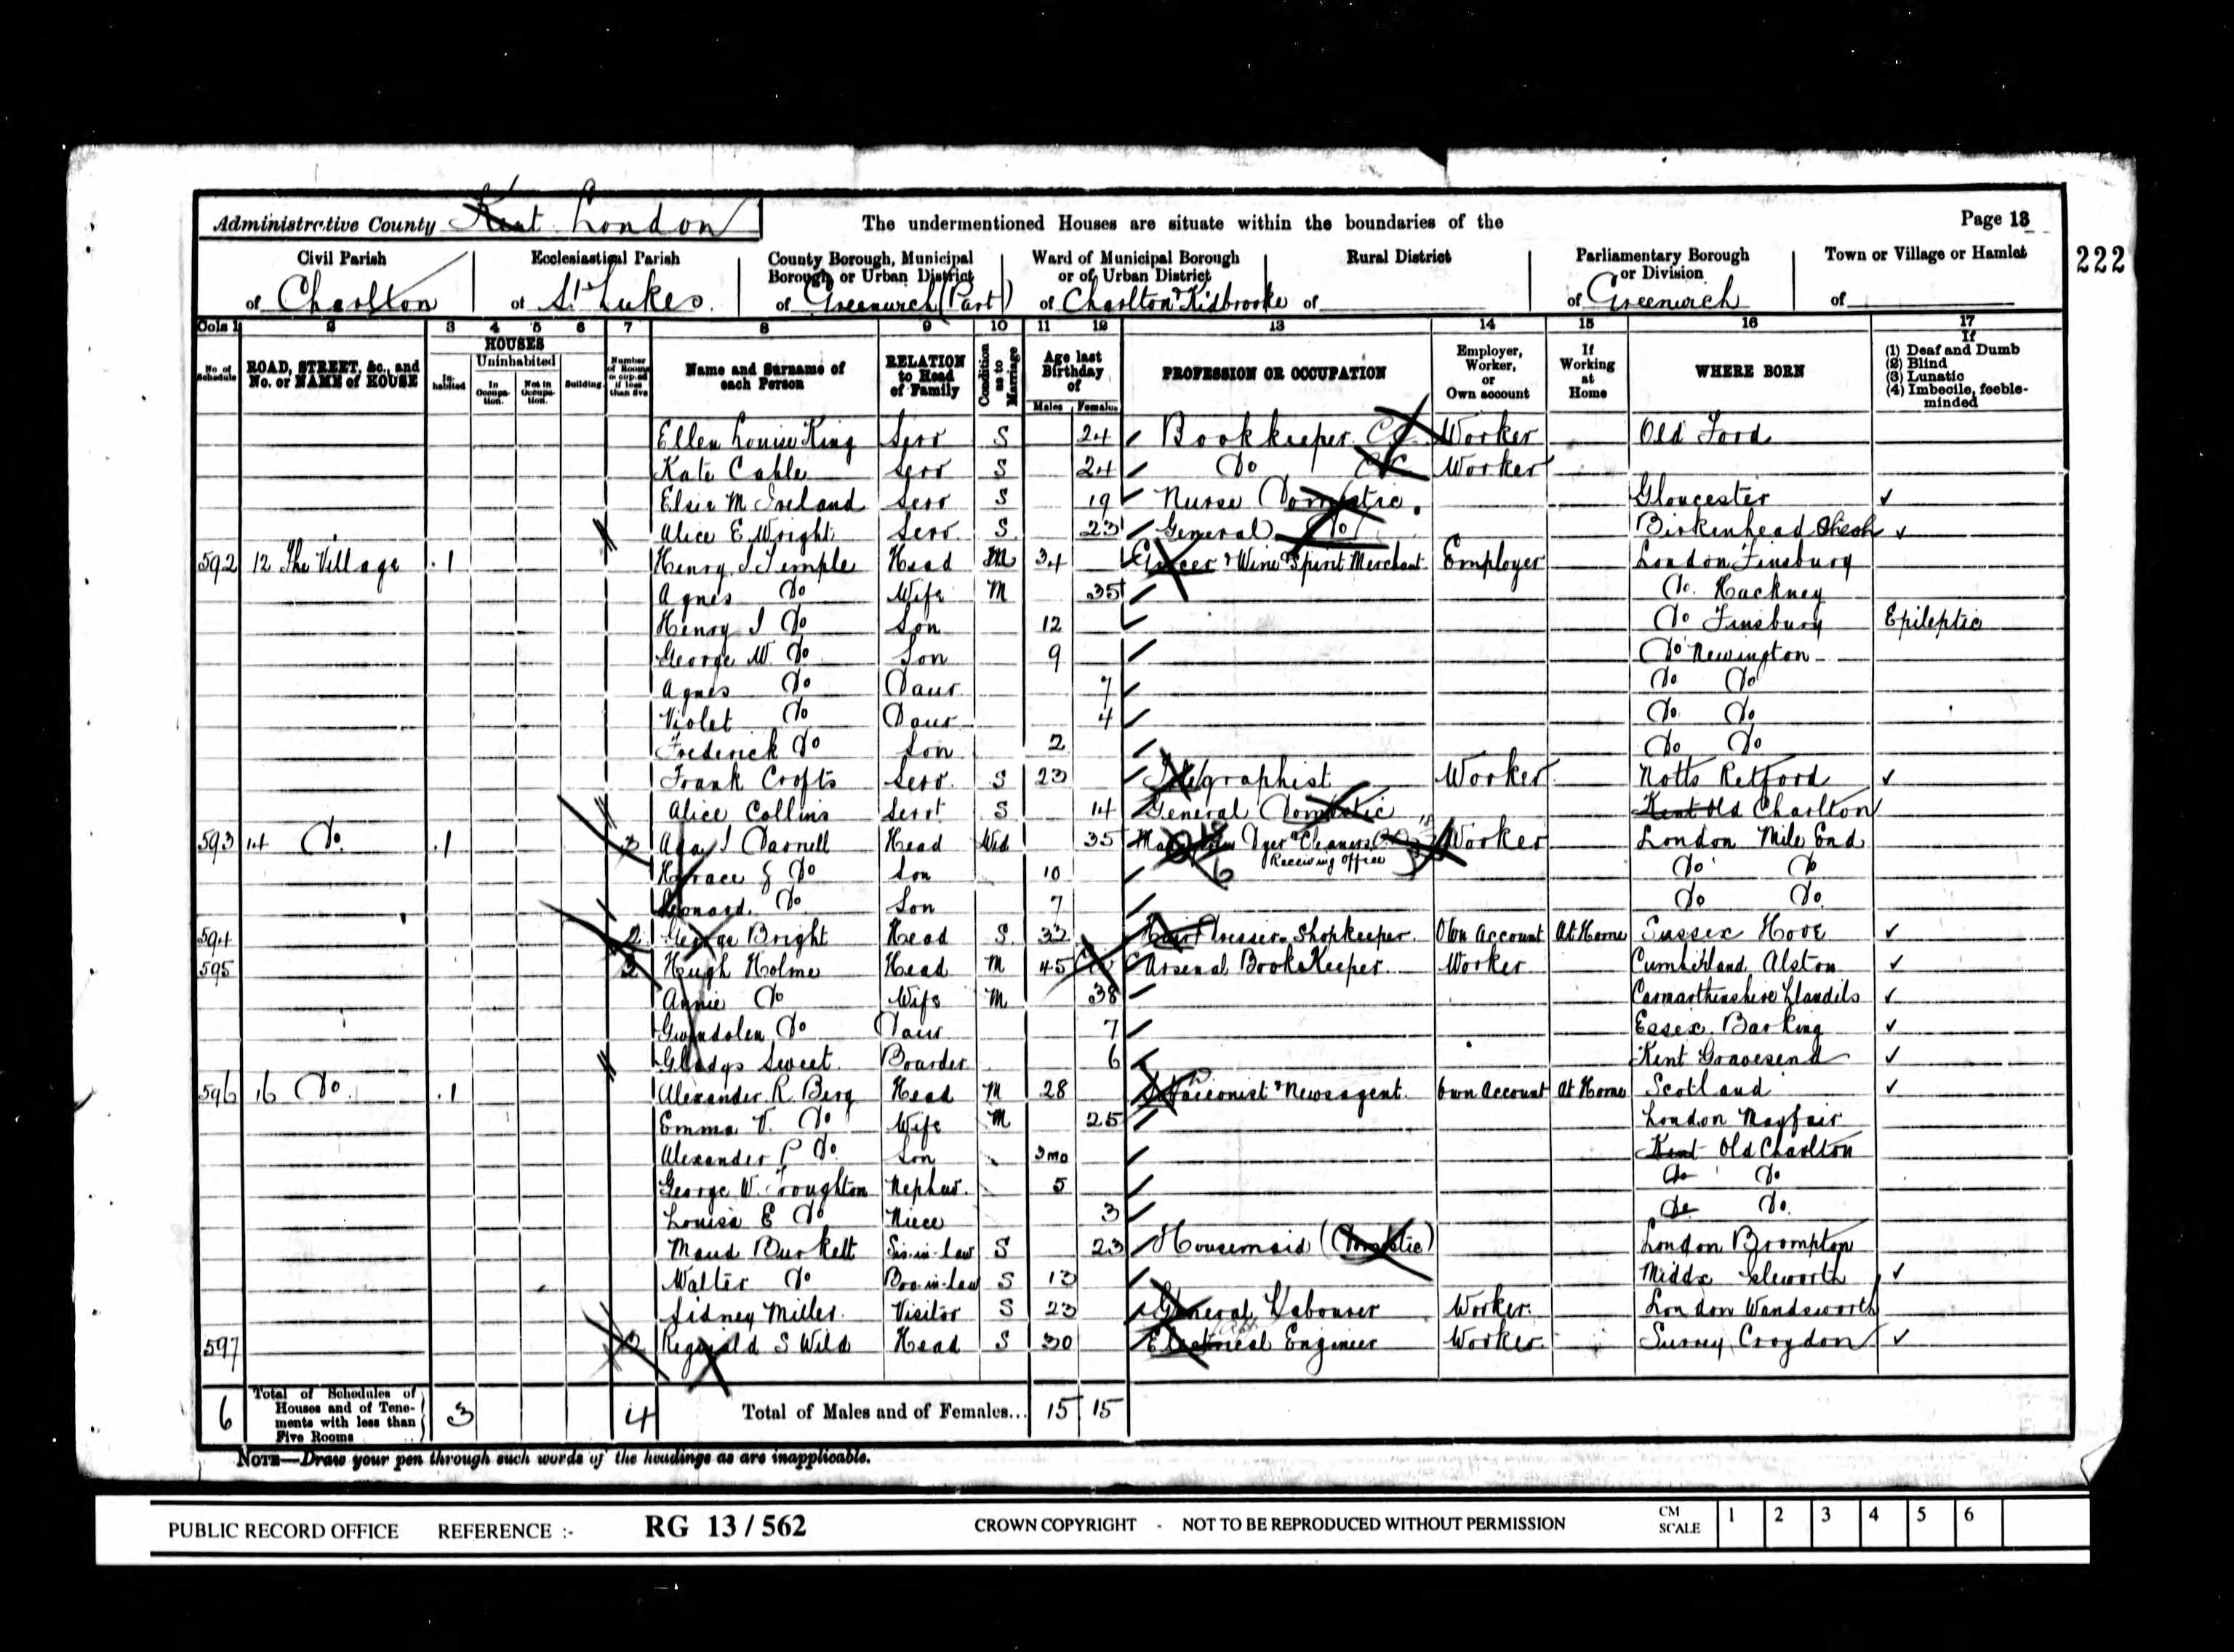 Administrative County Kent London The undermentioned Houses are situate within the boundaries of the Page 18
222
Civil Parish of Charlton
Ecclesiastical Parish of St Lukes.
County Borough, Municipal Borough or Urban District of Greenwich (Part)
Ward of Municipal Borough or of Urban District of Charlton & Kidbrooke
Rural District of
Parliamentary Borough or Division of Greenwich
Town or Village or Hamlet of
Cols 1 2 3 4 5 6 7 8 9 10 11 12 13 14 15 16 17
No. of Schedule
ROAD, STREET, &c., and No. or NAME of HOUSE
HOUSES
Inhabited
Uninhabited
In Occupation.
Not in Occupation.
Building.
Number of Rooms occupied if less than five
Name and Surname of each Person
RELATION to Head of Family
Condition as to Marriage
Age last Birthday of
Males Females
PROFESSION OR OCCUPATION
Employer, Worker, or Own account
If Working at Home
WHERE BORN
If
(1) Deaf and Dumb
(2) Blind
(3) Lunatic
(4) Imbecile, feeble-minded
Ellen Louise King Serv S 24 Bookkeeper Worker Old Ford
Kate Cable Serv S 24 Do Worker
Elsie M Ireland Serv S 19 Nurse Domestic Gloucester
Alice E Wright Serv. S 23 General Do Birkenhead Chesh
592 12 The Village 1 Henry J Temple Head M 34 Grocer & Wine & Spirit Merchant Employer London Finsbury
Agnes Do Wife M 35 Do. Hackney
Henry J Do Son 12 Do Finsbury Epileptic
George W. Do Son 9 Do Newington
Agnes Do Daur 7 Do Do
Violet Do Daur 4 Do Do
Frederick Do Son 2 Do Do
Frank Crofts Serv. S 23 Telegraphist Worker Notts Retford
Alice Collins Servt S 14 General Domestic Kent Old Charlton
593 14 Do. 1 Ada J Darnell Head Wid 35 Dyer & Cleaners Receiving Office Worker London Mile End
Horace G Do Son 10 Do Do
Leonard. Do Son 7 Do Do.
594 2 George Bright Head S 33 Hair Dresser Shopkeeper. Own Account At Home Sussex Hove
595 3 Hugh Holme Head M 45 Arsenal Book Keeper Worker Cumberland Alston
Annie Do Wife M 38 Carmarthenshire Llandilo
Gwendolen Do Daur 7 Essex. Barking
Gladys Sweet. Boarder 6 Kent Gravesend
596 16 Do. 1 Alexander R Berg Head M 28 & Newsagent. Own Account At Home Scotland
Emma V. Do Wife M 25 London Mayfair
Alexander P Do. Son 3mo Kent Old Charlton
George W. Troughton Nephew. 5 do Do.
Louisa E Do Niece 3 do Do.
Maud Burkett Sis-in-law S 23 Housemaid (Domestic) London Brompton
Walter Do Bro-in-law S 13 Middx Isleworth
Sidney Miller. Visitor S 23 General Labourer Worker. London Wandsworth
597 2 Reginald S Wild Head S 30 Electrical Engineer Worker. Surrey Croydon
6 Total of Schedules of Houses and of Tenements with less than Five Rooms 3 4 Total of Males and of Females... 15 15
NOTE—Draw your pen through such words of the headings as are inapplicable.
PUBLIC RECORD OFFICE REFERENCE :- RG 13 / 562 CROWN COPYRIGHT - NOT TO BE REPRODUCED WITHOUT PERMISSION CM SCALE 1 2 3 4 5 6